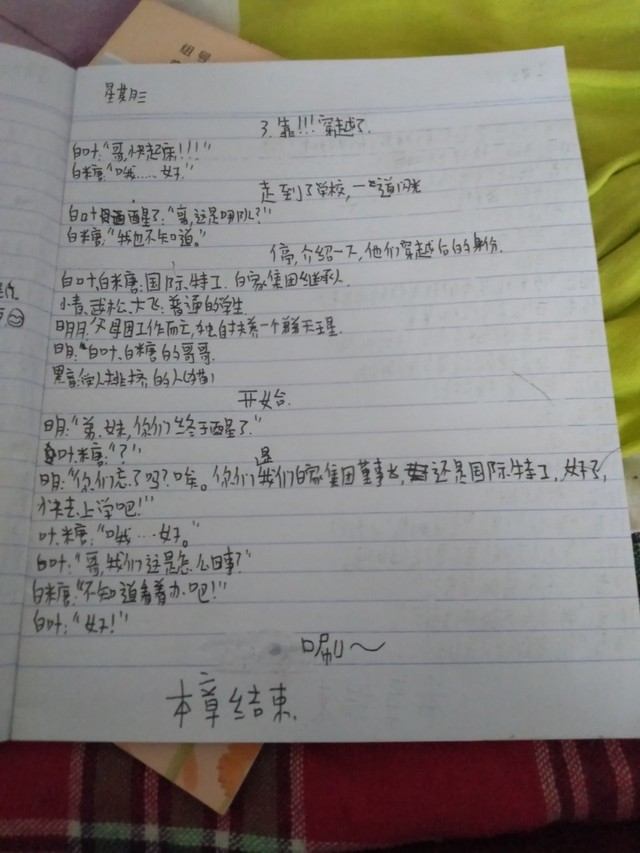 组号
星期三
3.靠!!!穿越了.
白叶:"哥,快起床!!!"
白糖:"哦……好."
走到了学校,一道闪光
白叶醒了:"哥,这是哪儿?"
白糖:"我也不知道。"
停,介绍一下,他们穿越后的身份.
白叶,白糖:国际特工.白家集团继承人
小青,武松,大飞:普通的学生
明月:父母因工作而亡,独自扶养一个弟天王星.
明:白叶.白糖的哥哥.
黑:受人排挤的人(猫)
开始.
明:"弟.妹,你们终于醒了."
叶.糖:"?"
明:"你们忘了吗?唉。你们是我们白家集团董事长,还是国际特工,好了,
快去上学吧!"
叶.糖:"哦…好。"
白叶:"哥,我们这是怎么回事?"
白糖:"不知道看着办吧!"
白叶:"好!"
唰~
本章结束.